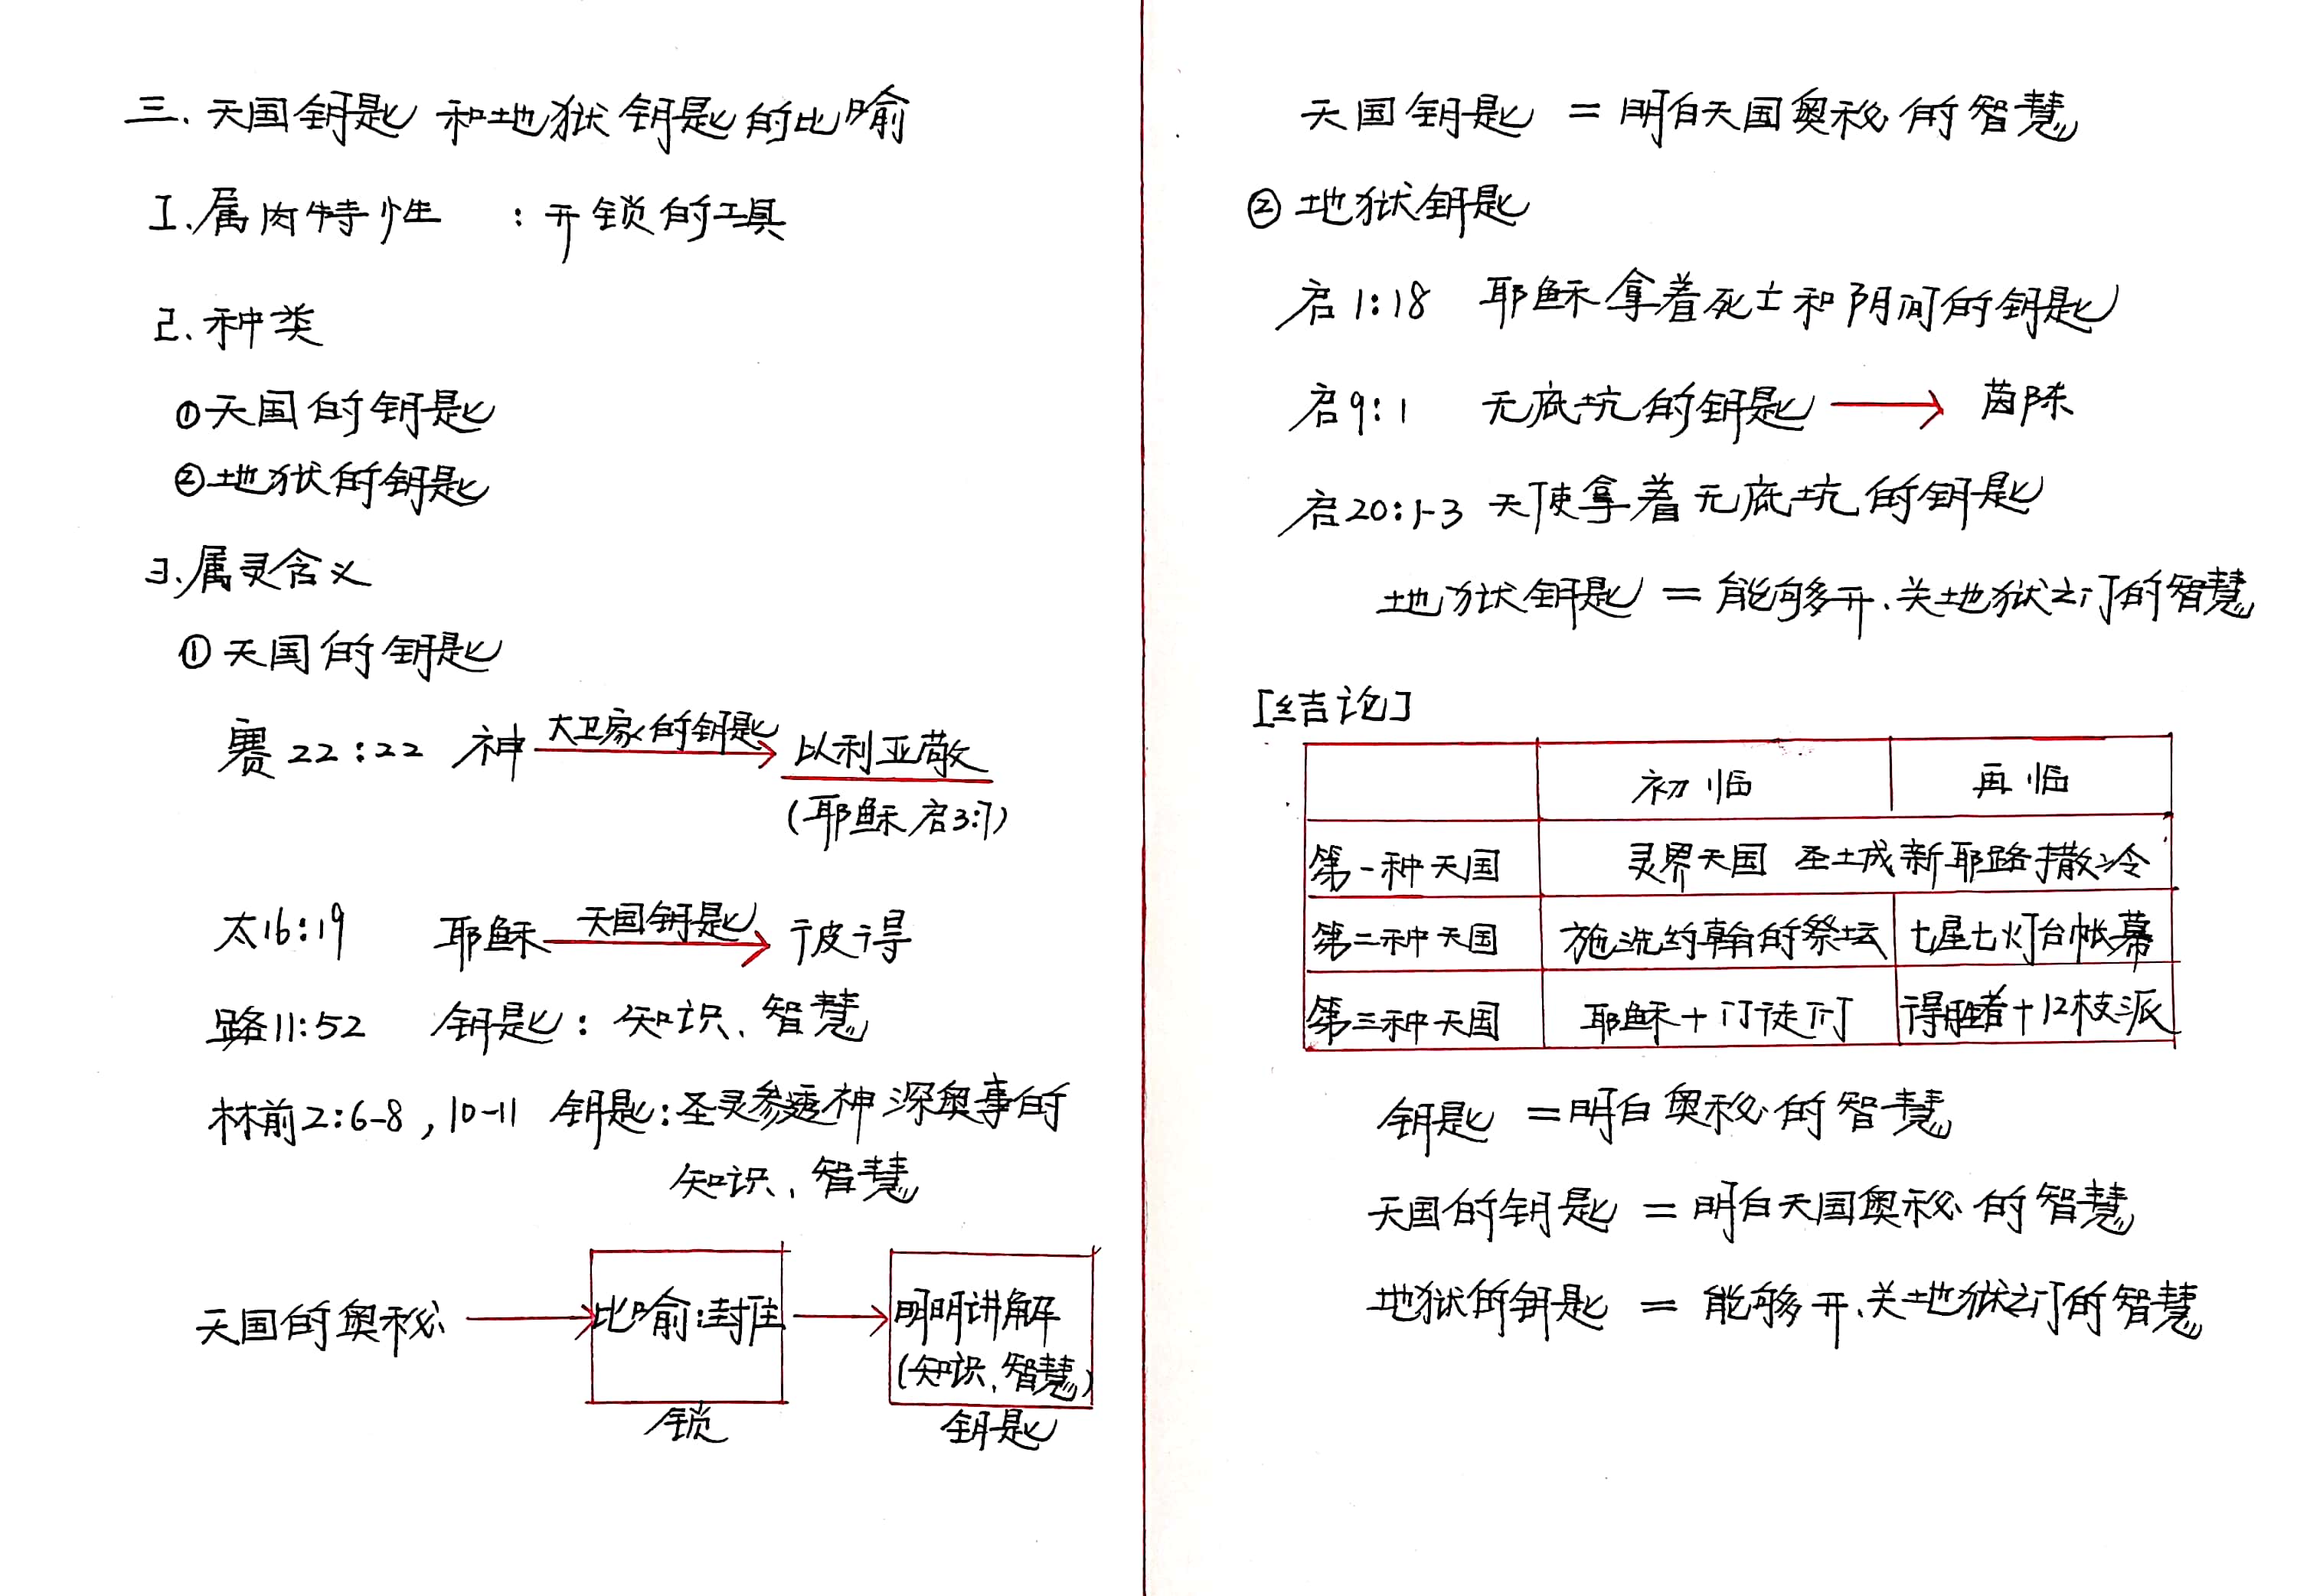 三、天国钥匙 和地狱钥匙的比喻
1、属肉特性 ：开锁的工具
2、种类
①天国的钥匙
②地狱的钥匙
3、属灵含义
①天国的钥匙
赛22:22 神 大卫家的钥匙 以利亚敬
(耶稣 启3:7)
太16:19 耶稣 天国钥匙 彼得
路11:52 钥匙：知识、智慧
林前2:6-8，10-11 钥匙：圣灵参透神深奥事的
知识、智慧
天国的奥秘 比喻:封住 明明讲解
(知识、智慧)
锁 钥匙
天国钥匙 = 明白天国奥秘的智慧
② 地狱钥匙
启1:18 耶稣拿着死亡和阴间的钥匙
启9:1 无底坑的钥匙 茵陈
启20:1-3 天使拿着无底坑的钥匙
地狱钥匙 = 能够开、关地狱之门的智慧
[结论]
初临 再临
第一种天国 灵界天国 圣城新耶路撒冷
第二种天国 施洗约翰的祭坛 七星七灯台帐幕
第三种天国 耶稣+门徒们 得胜者+12枝派
钥匙 =明白奥秘的智慧
天国的钥匙 = 明白天国奥秘的智慧
地狱的钥匙 = 能够开、关地狱之门的智慧